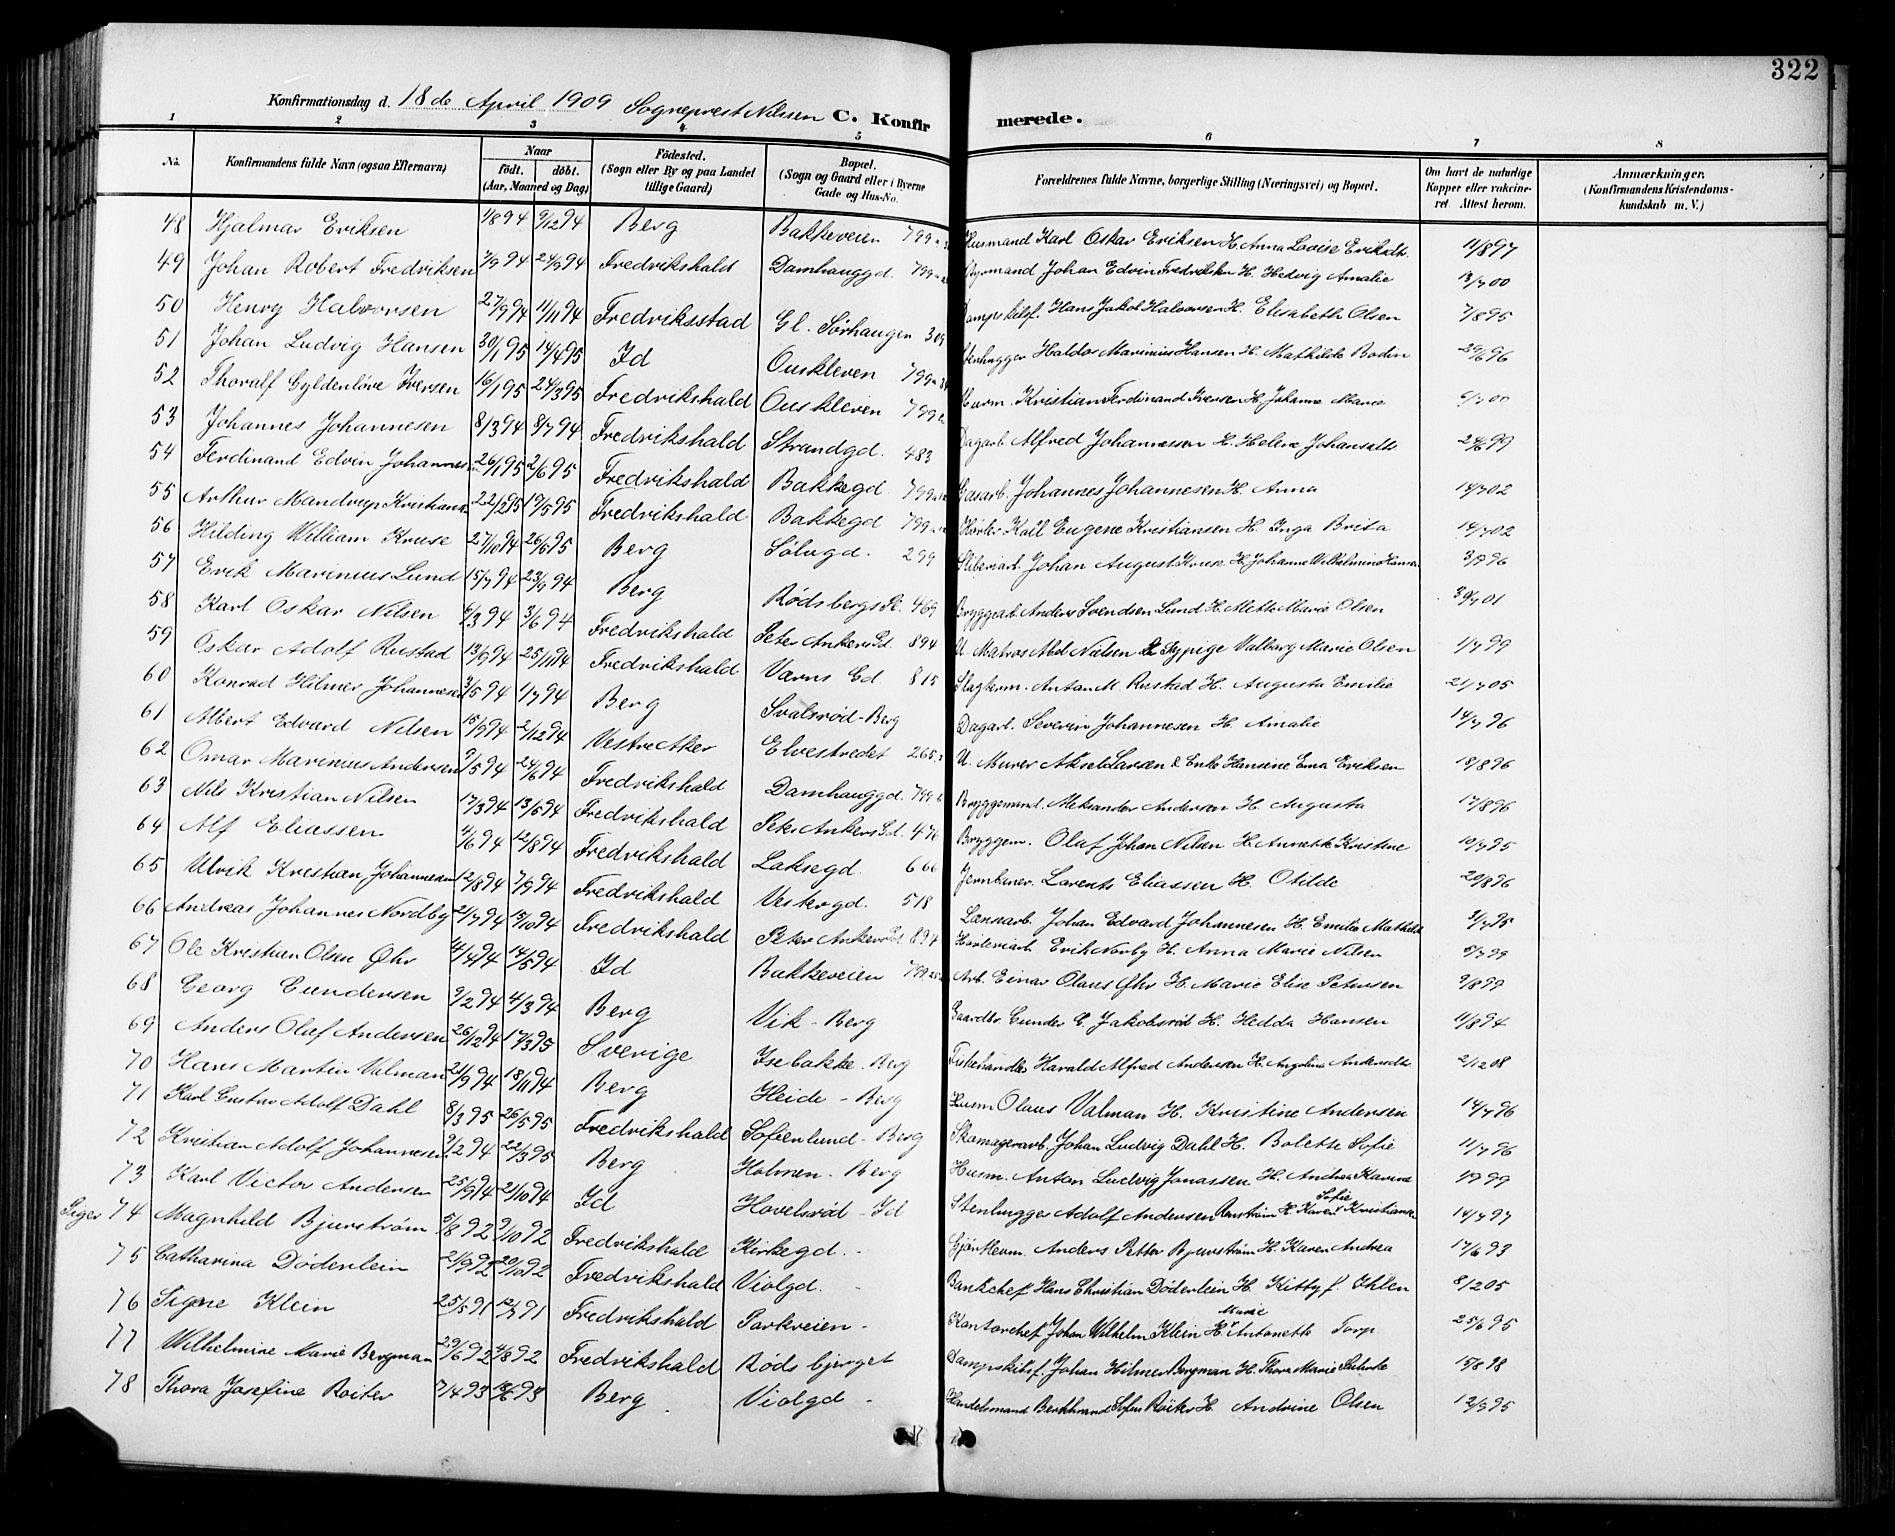 322
Konfirmationsdag d. 18de April 1909 Sogneprest Nilssen C. Konfir merede.
1 2 3 4 5 6 7 8
No. Konfirmandens fulde Navn (ogsaa Efternavn) Naar født. døbt. (Aar, Maaned og Dag) Fødested. (Sogn eller By og paa Landet tillige Gaard) Bopæl. (Sogn og Gaard eller i Byerne Gade og Hus-No. Forældrenes fulde Navne, borgerlige Stilling (Næringsvei) og Bopæl. Om havt de naturlige Kopper eller vakcineret. Attest herom. Anmærkninger. (Konfirmandens Kristendomskundskab m. V.)
48 Hjalmar Eriksen 1/8 94 9/12 94 Berg Bakkeveien 799 Husmand Karl Oskar Eriksen H. Anna Lovise Eriksdtr. 11/8 97
49 Johan Robert Fredriksen 7/9 94 24/9 94 Fredrikshald Damhauggd. 799 Johan Edvin Fredriksen H. Hedvig Amalie 13/7 00
50 Henry Halvorsen 27/9 94 11/11 94 Fredriksstad Gl. Sørhaugen 309 Dampskibsf. Hans Jakob Halvorsen H. Elisabeth Olsen 7/8 95
51 Johan Ludvig Hansen 30/1 95 14/4 95 Id Ouskleven 799 Stenhugger Haldor Marinius Hansen H. Mathilde Bodin 29/6 96
52 Thoralf Gyldenløve Iversen 16/1 95 24/3 95 Fredrikshald Ouskleven 799 Murm. Kristian Ferdinand Iversen H. Johanne Marie 9/7 00
53 Johannes Johannesen 8/3 94 8/7 94 Fredrikshald Strandgd. 483 Dagarb. Alfred Johannessen H. Helene Johansdtr. 24/6 99
54 Ferdinand Edvin Johannes 26/1 95 2/6 95 Fredrikshald Bakkegd. 799 Gasarb. Johannes Johannesen H. Anna 14/7 02
55 Arthur Mandrup Kristians 22/2 95 19/5 95 Fredrikshald Bakkegd 799 Karl Eugene Kristiansen H. Inga Brita 14/7 02
56 Hilding William Kruse 27/10 94 26/6 95 Berg Sølvgd. 299 Sliberiarb. Johan August Kruse H. Johanne Wilhelmine Hansen 3/7 96
57 Erik Marinius Lund 15/7 94 23/9 94 Berg Rødsbergs St. 469 Bryggearb. Anders Svendsen Lund H. Mette Marie Olsen 30/7 01
58 Karl Oskar Nilsen 6/3 94 3/6 94 Fredrikshald Peter Ankers Pl. 894 U. Matros Abel Nielsen & Sypige Valborg Marie Olsen 1/7 99
59 Oskar Adolf Rustad 13/9 94 25/11 94 Fredrikshald Værns Gd 815 Slagterm. Anton M. Rustad H. Augusta Emilie 21/7 05
60 Konrad Hilmer Johannesen 3/5 94 1/7 94 Berg Svalsrød-Berg Dagarb. Severin Johannesen H. Amalie 14/7 96
61 Albert Edvard Nilsen 15/9 94 2/12 94 Vestre Aker Elvestredet 265 U. Murer Aksel Larsen & Enke Hansine Ema Eriksen 18/8 96
62 Omar Marinius Andersen 9/5 94 24/6 94 Fredrikshald Damhauggd. 799 Bryggemand. Aleksander Andersen H. Augusta 17/8 96
63 Nils Kristian Nilsen 17/3 94 13/5 94 Fredrikshald Peter Ankers Pl. 476 Bryggem. Olaf Johan Nilsen H. Annette Kristine 10/7 95
64 Alf Eliassen 4/6 94 12/8 94 Fredrikshald Laksegd. 666 Jernbanev. Lorents Eliassen H. Otilde 20/8 96
65 Ulrik Kristian Johannesen 12/8 94 7/9 94 Fredrikshald Vestergd. 518 Lænsearb. Johan Edvard Johannesen H. Emilie Mathilde 31/7 95
66 Andreas Johannes Nordby 21/7 94 13/10 94 Fredrikshald Peter Ankers Pl. 894 Erik Norby H. Anna Marie Nilsen 5/7 99
67 Ole Kristian Olsen Øhr 4/4 94 14/5 94 Id Bakkeveien 799 Arb. Einar Olaus Øhr H. Marie Elise Petersen 9/8 99
68 Georg Gundersen 9/2 94 4/3 94 Berg Vik - Berg Gaardbr. Gunder G. Jakobsrød H. Hedda Hansen 11/8 94
69 Anders Olaf Andersen 26/12 94 17/3 95 Sverige Isebakke - Berg Fiskehandler Harald Alfred Andersen H. Angelina Andersdtr. 2/12 08
70 Hans Martin Valman 21/9 94 18/11 94 Berg Heide - Berg Husm Olaus Valman H. Kristine Andersen 14/7 96
71 Karl Gustav Adolf Dahl 8/3 95 26/5 95 Fredrikshald Sofienlund - Berg Skomagerarb. Johan Ludvig Dahl H. Bolette Sofie 11/7 96
72 Kristian Adolf Johannesen 9/2 94 22/3 95 Berg Holmen - Berg Husm. Anton Ludvig Jonassen H. Andrea Karine 1/9 99
73 Karl Victor Andersen 25/9 94 21/10 94 Id Hovelsrød - Id Stenhugger Adolf Andersen Renstrøm H. Karen Sofie Kristiansen 14/7 97
Piger 74 Magnhild Bjurstrøm 5/8 92 9/10 92 Fredrikshald Kirkegd. - Anders Petter Bjurstrøm H. Karen Andrea 17/6 93
75 Catharina Døderlein 21/9 92 20/10 92 Fredrikshald Violgd. - Bankchef Hans Christian Døderlein H. Kitty f. Ohlen 8/2 05
76 Signe Klein 25/5 91 12/7 91 Fredrikshald Parkveien - Kontorchef Johan Wilhelm Klein H. Marie Antonette Torp 25/6 95
77 Wilhelmine Marie Bergman 29/6 92 4/8 92 Fredrikshald Rødsbjerget Dampskibsf. Johan Hilmer Bergman H. Thora Marie 15/8 98
78 Thora Josefine Roiter 7/4 93 18/6 93 Berg Violgd - Handelsmand Berthrand Sofus Røiter H. Andrine Olsen 12/9 95